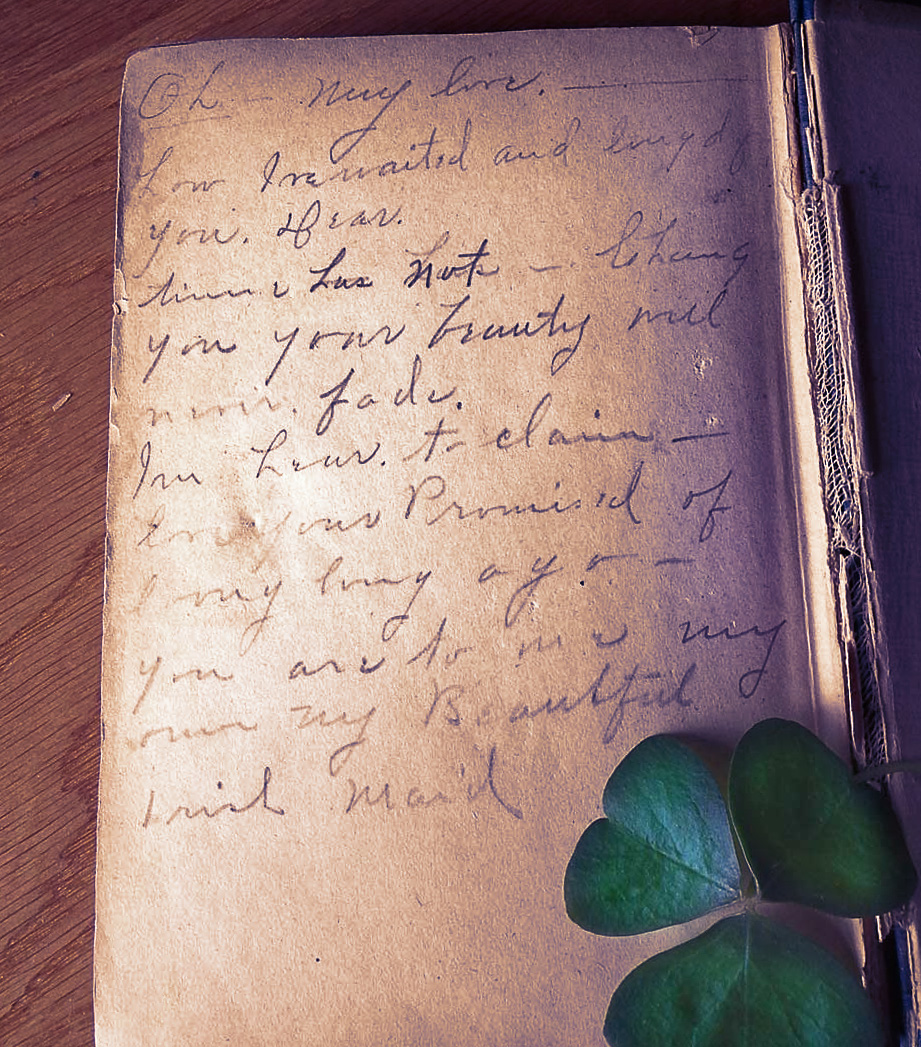 Oh - my love. —
how Ive waited and longd
you. Dear.
time has not - Chang
you your beauty will
never. fade.
Im hear. to claim —
love your Promised of
long long ago —
you are to me my
own my Beautful
Irish Maid